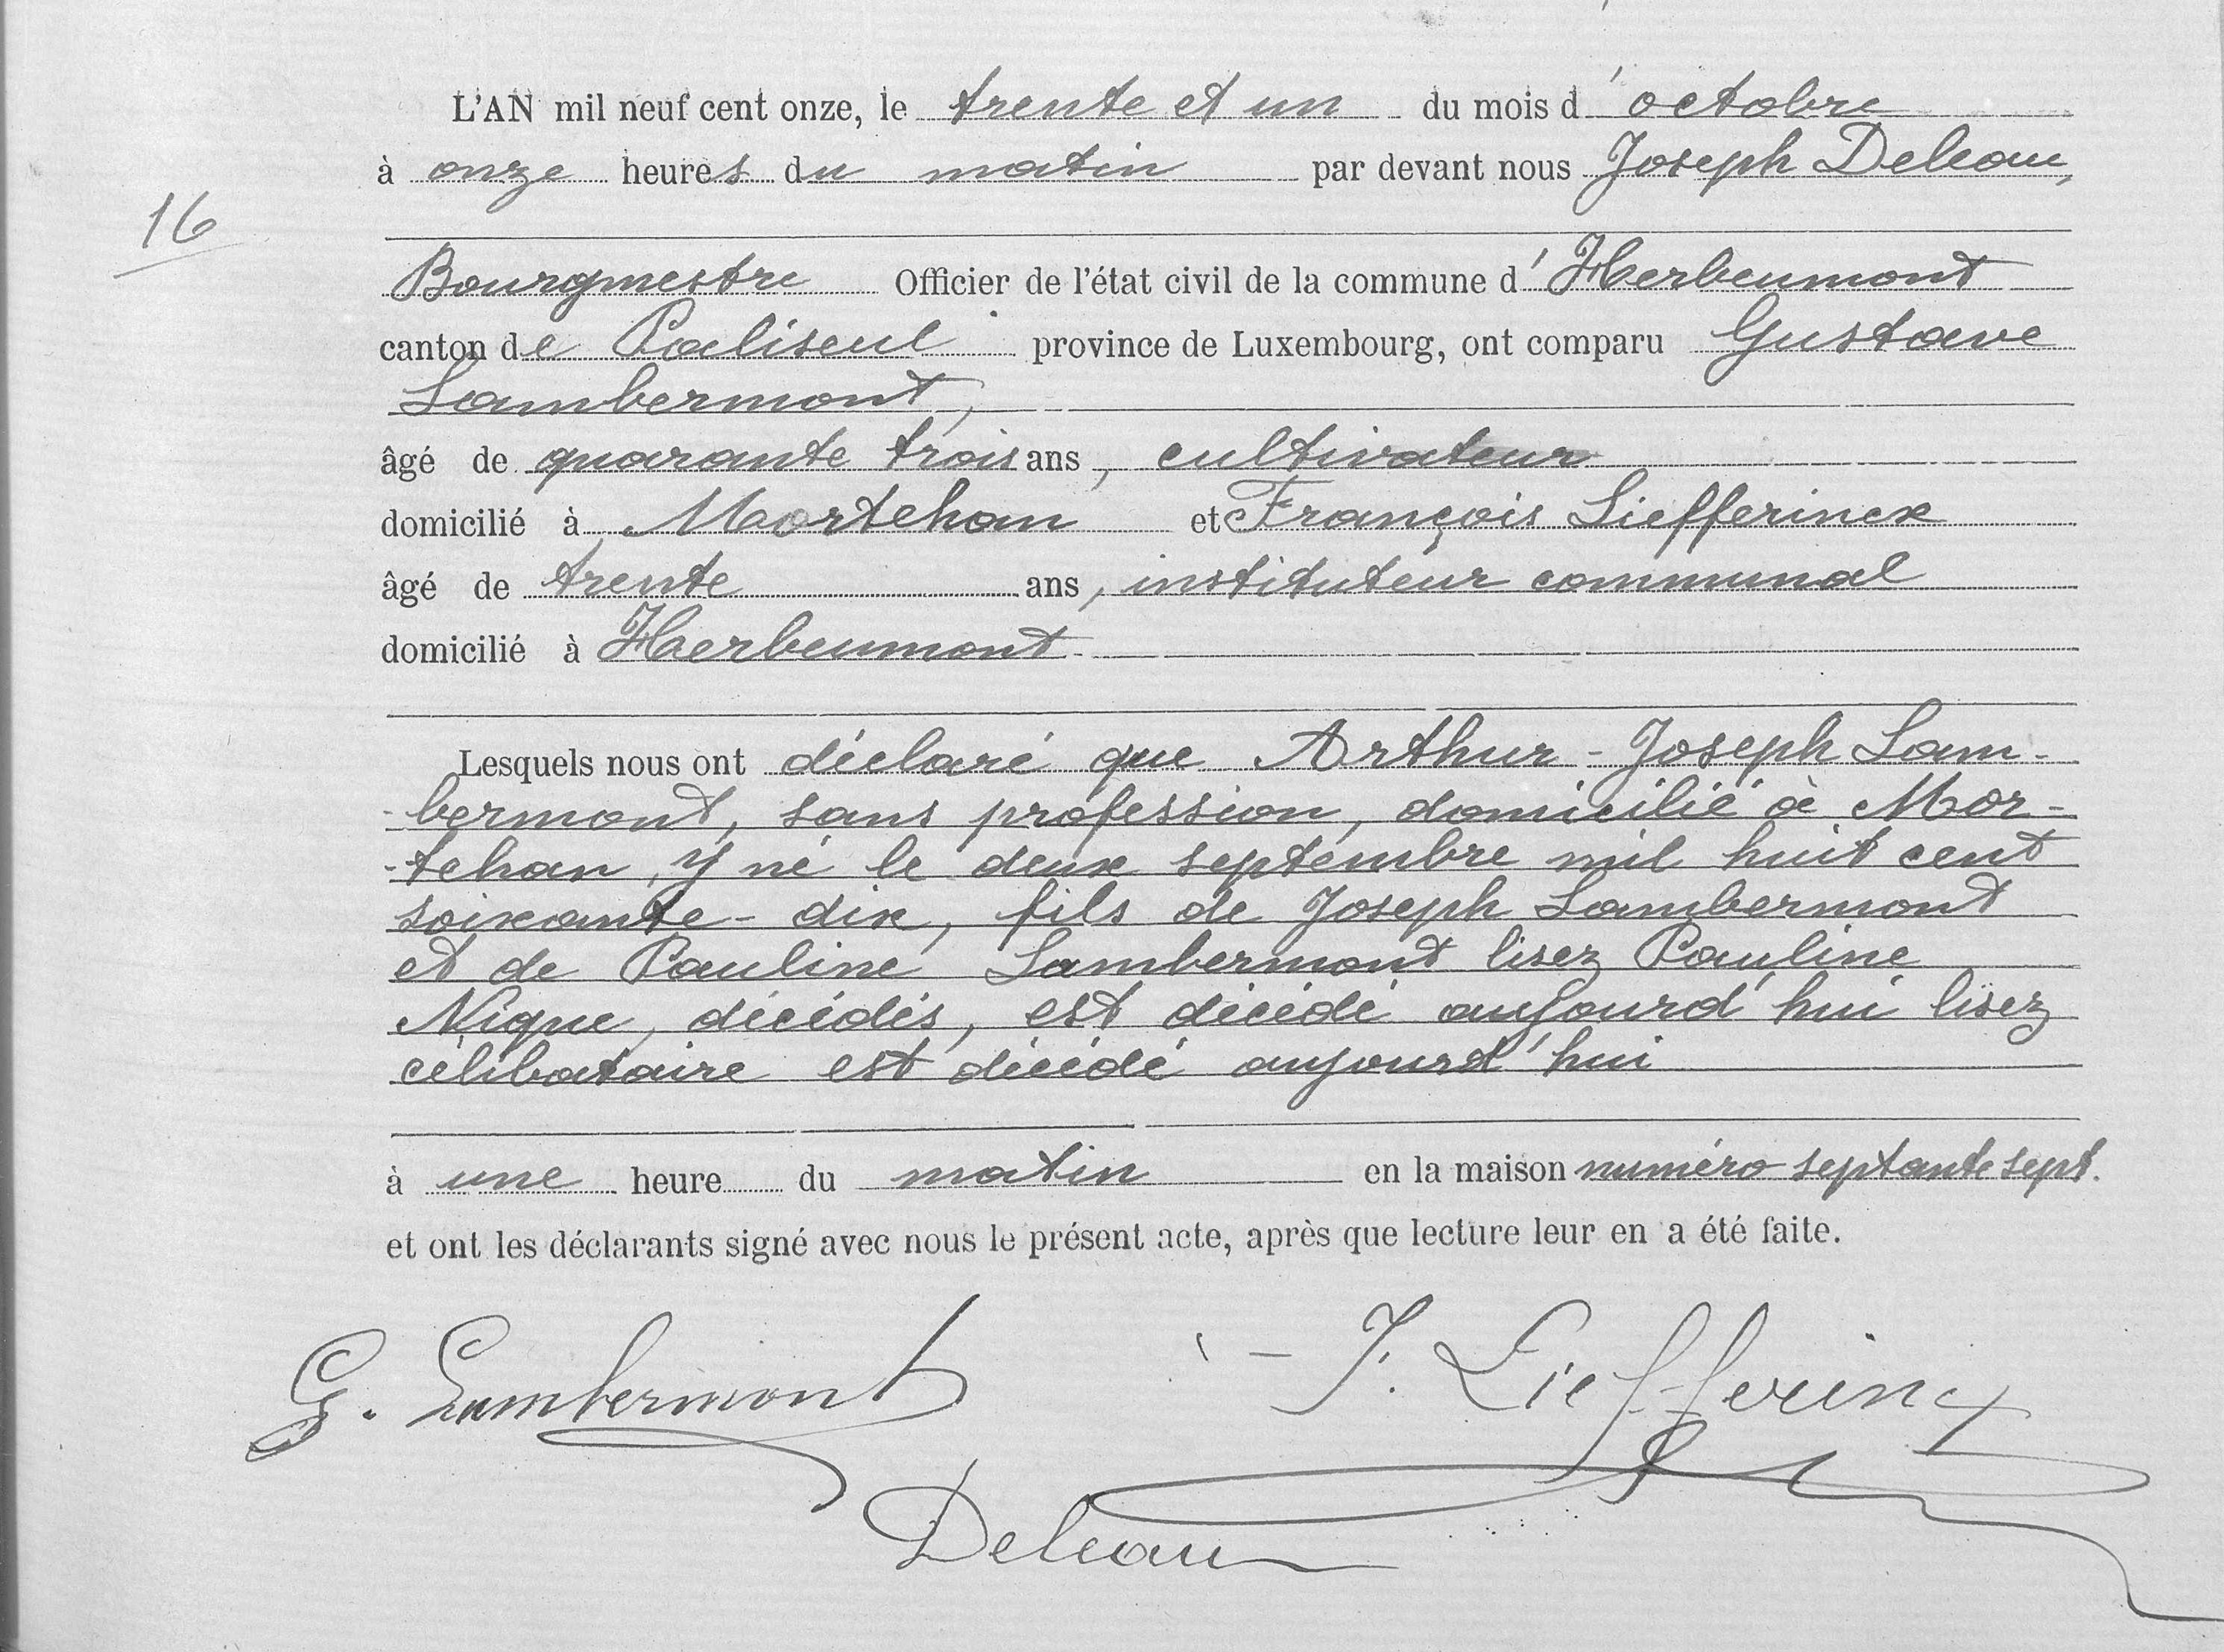 L'AN mil neuf cent onze, le trente et un du mois d'octobre
à onze heures du matin par devant nous Joseph Deleau,
16
Bourgmestre Officier de l'état civil de la commune d'Herbeumont
canton de Paliseul province de Luxembourg, ont comparu Gustave
Lambermont,
âgé de quarante trois ans, cultivateur
domicilié à Mortehan et François Liefferincx
âgé de trente ans, instituteur communal
domicilié à Herbeumont
Lesquels nous ont déclaré que Arthur-Joseph Lam-
-bermont, sans profession, domicilié à Mor-
-tehan, y né le deux septembre mil huit cent
soixante-dix, fils de Joseph Lambermont
et de Pauline Lambermont lisez Pauline
Nique, décédés, est décédé aujourd'hui lisez
célibataire est décédé aujourd'hui
à une heure du matin en la maison numéro septante sept.
et ont les déclarants signé avec nous le présent acte, après que lecture leur en a été faite.
G. Lambermont
F. Liefferincx
Deleau